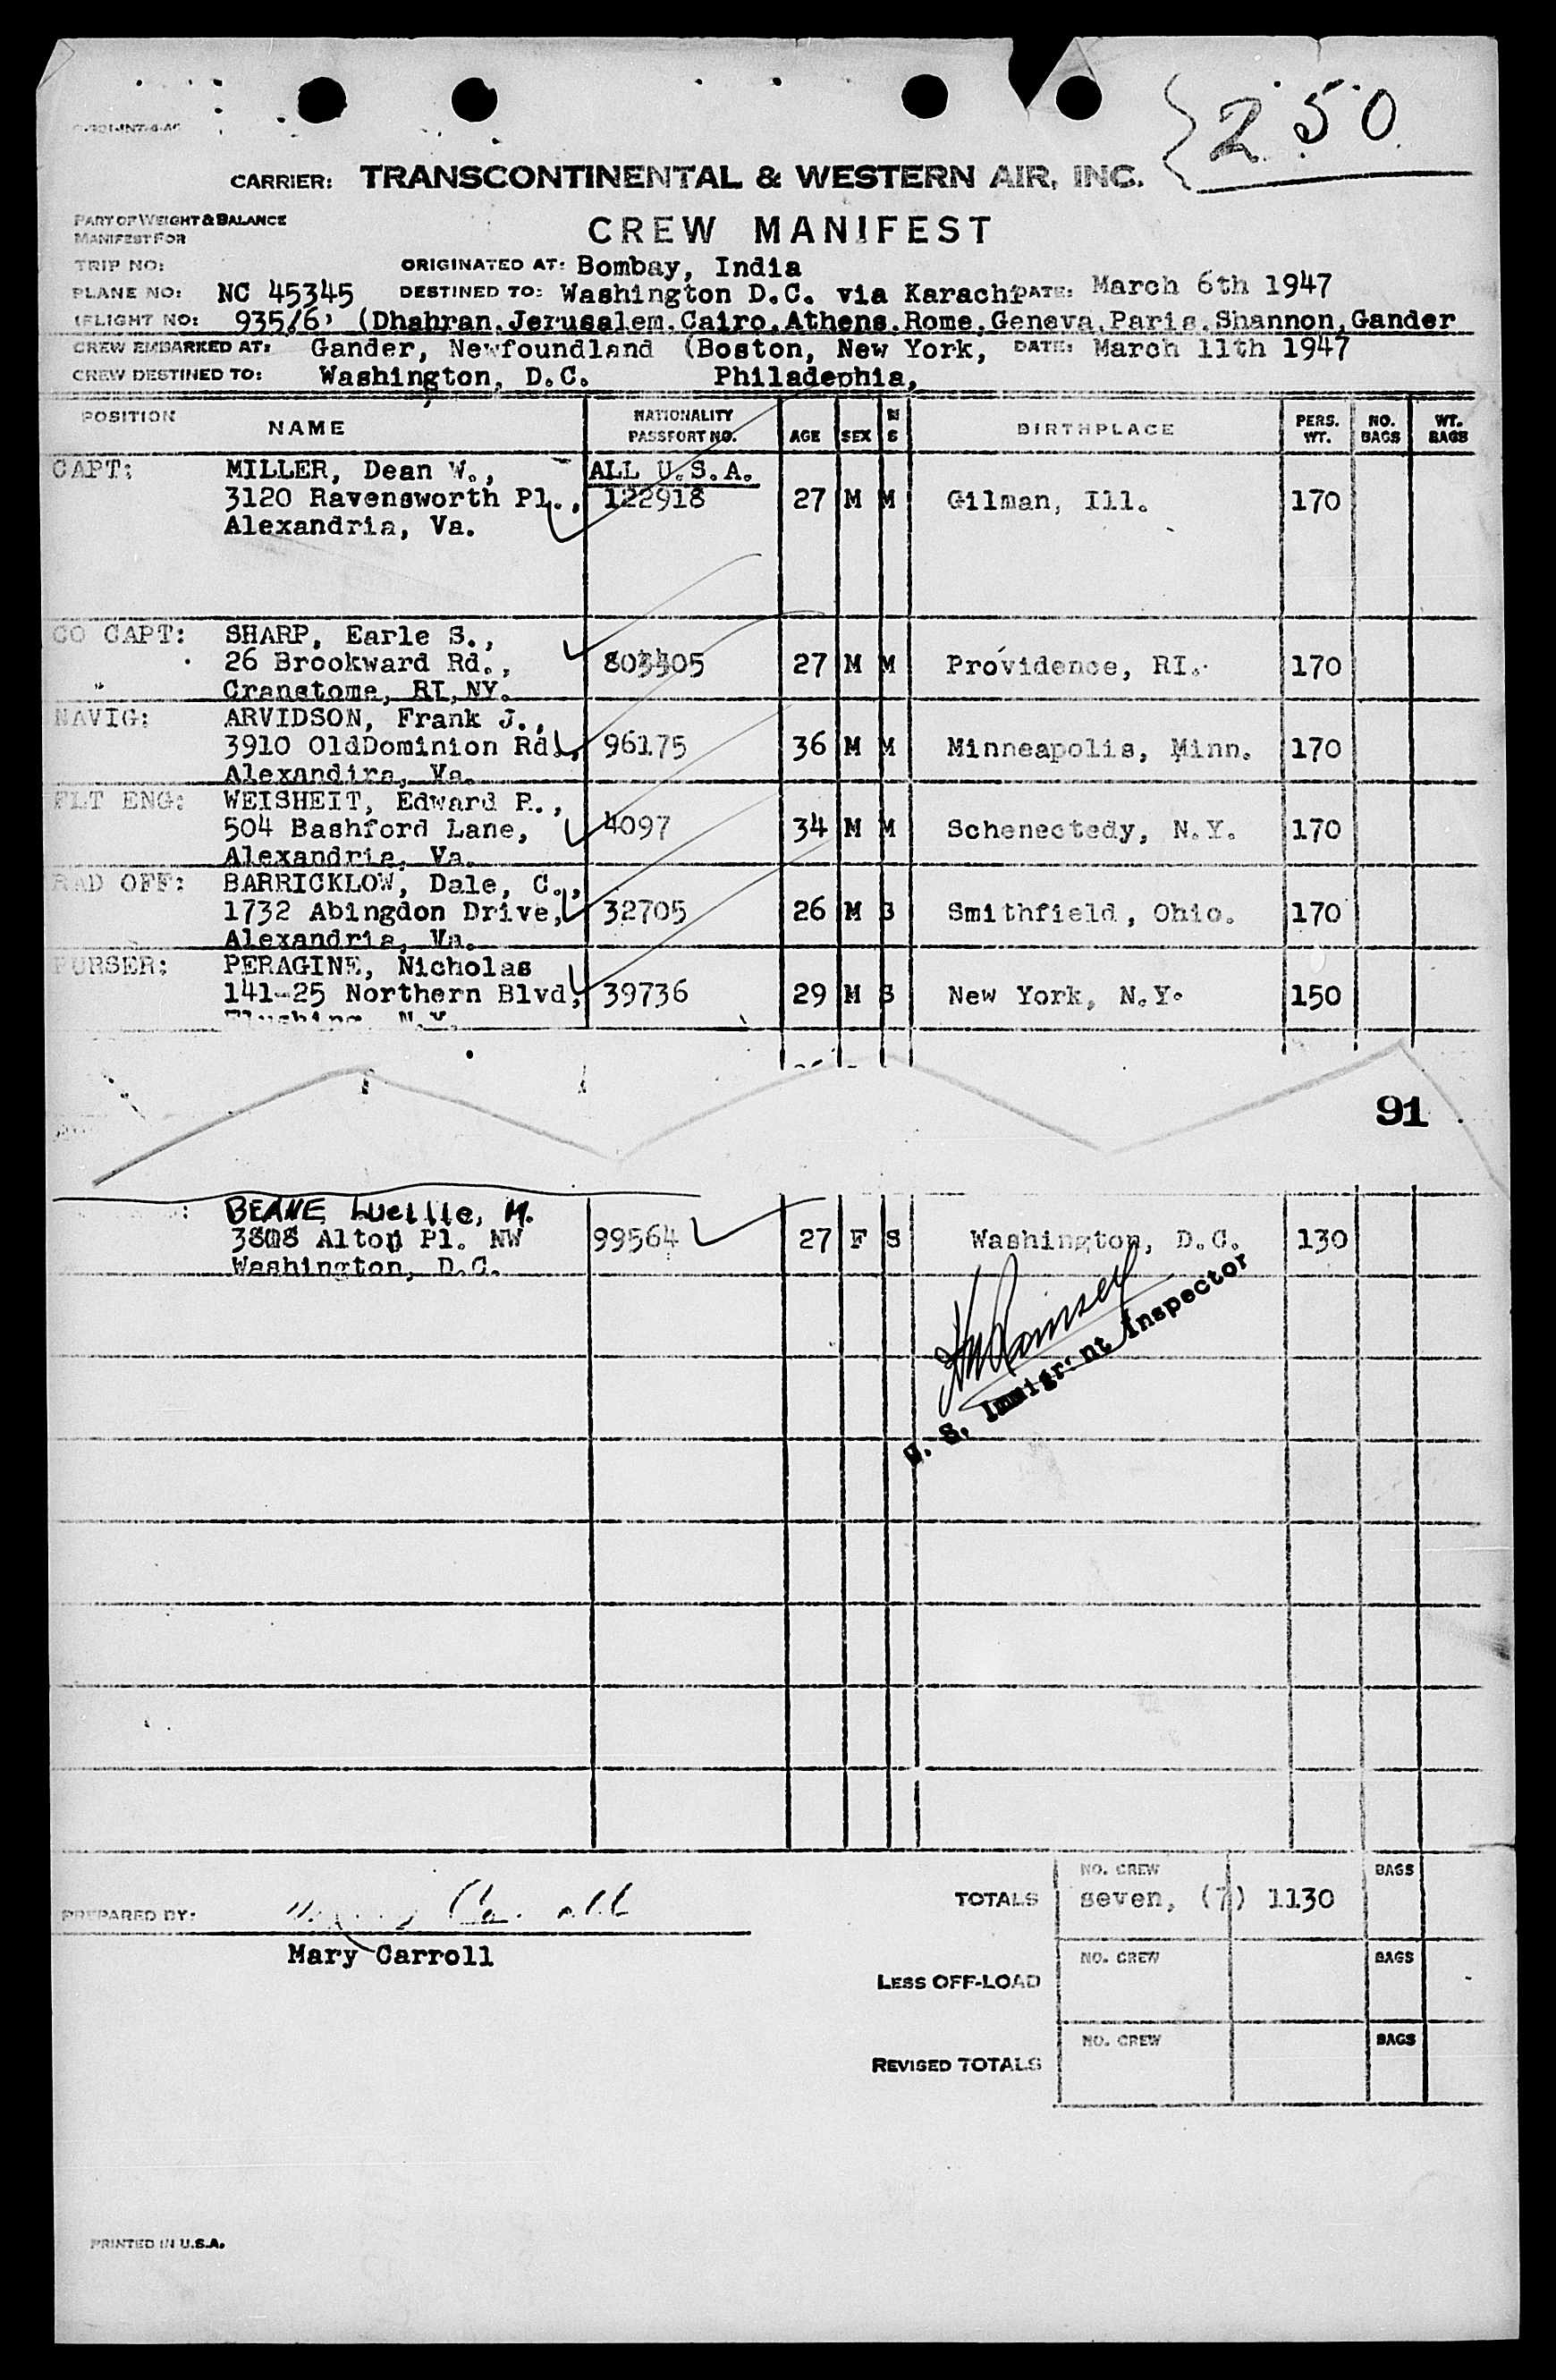 250
CARRIER: TRANSCONTINENTAL & WESTERN AIR, INC.
PART OF WEIGHT & BALANCE
MANIFEST FOR
CREW MANIFEST
TRIP NO: ORIGINATED AT: Bombay, India
PLANE NO: NC 45345 DESTINED TO: Washington D.C. via Karachi DATE: March 6th 1947
(FLIGHT NO: 935/6) (Dhahran, Jerusalem, Cairo, Athens, Rome, Geneva, Paris, Shannon, Gander
CREW EMBARKED AT: Gander, Newfoundland (Boston, New York, DATE: March 11th 1947
CREW DESTINED TO: Washington, D.C. Philadephia,
POSITION NAME NATIONALITY PASSPORT NO. AGE SEX M S BIRTHPLACE PERS. WT. NO. BAGS WT. BAGS
CAPT: MILLER, Dean W., ALL U.S.A.
3120 Ravensworth Pl., 122918 27 M M Gilman, Ill. 170
Alexandria, Va.
CO CAPT: SHARP, Earle S.,
26 Brookward Rd., 27 M M Providence, RI. 170
Cranstome, RI, NY.
NAVIG: ARVIDSON, Frank J.,
3910 OldDominion Rd., 96175 36 M M Minneapolis, Minn. 170
Alexandira, Va.
FLT ENG: WEISHEIT, Edward P.,
504 Bashford Lane, 4097 34 M M Schenectedy, N.Y. 170
Alexandria, Va.
RAD OFF: BARRICKLOW, Dale, C.,
1732 Abingdon Drive, 32705 26 M S Smithfield, Ohio. 170
Alexandria, Va.
PURSER: PERAGINE, Nicholas
141-25 Northern Blvd, 39736 29 M S New York, N.Y. 150
Flushing, N.Y.
91
: BEANE, Lucille, M.
Alton Pl. NW 99564 27 F S Washington, D.C. 130
Washington, D.C.
U. S. Immigrant Inspector
NO. CREW BAGS
TOTALS seven, (7) 1130
PREPARED BY: Mary Carroll
Mary Carroll
NO. CREW BAGS
LESS OFF-LOAD
NO. CREW BAGS
REVISED TOTALS
PRINTED IN U.S.A.